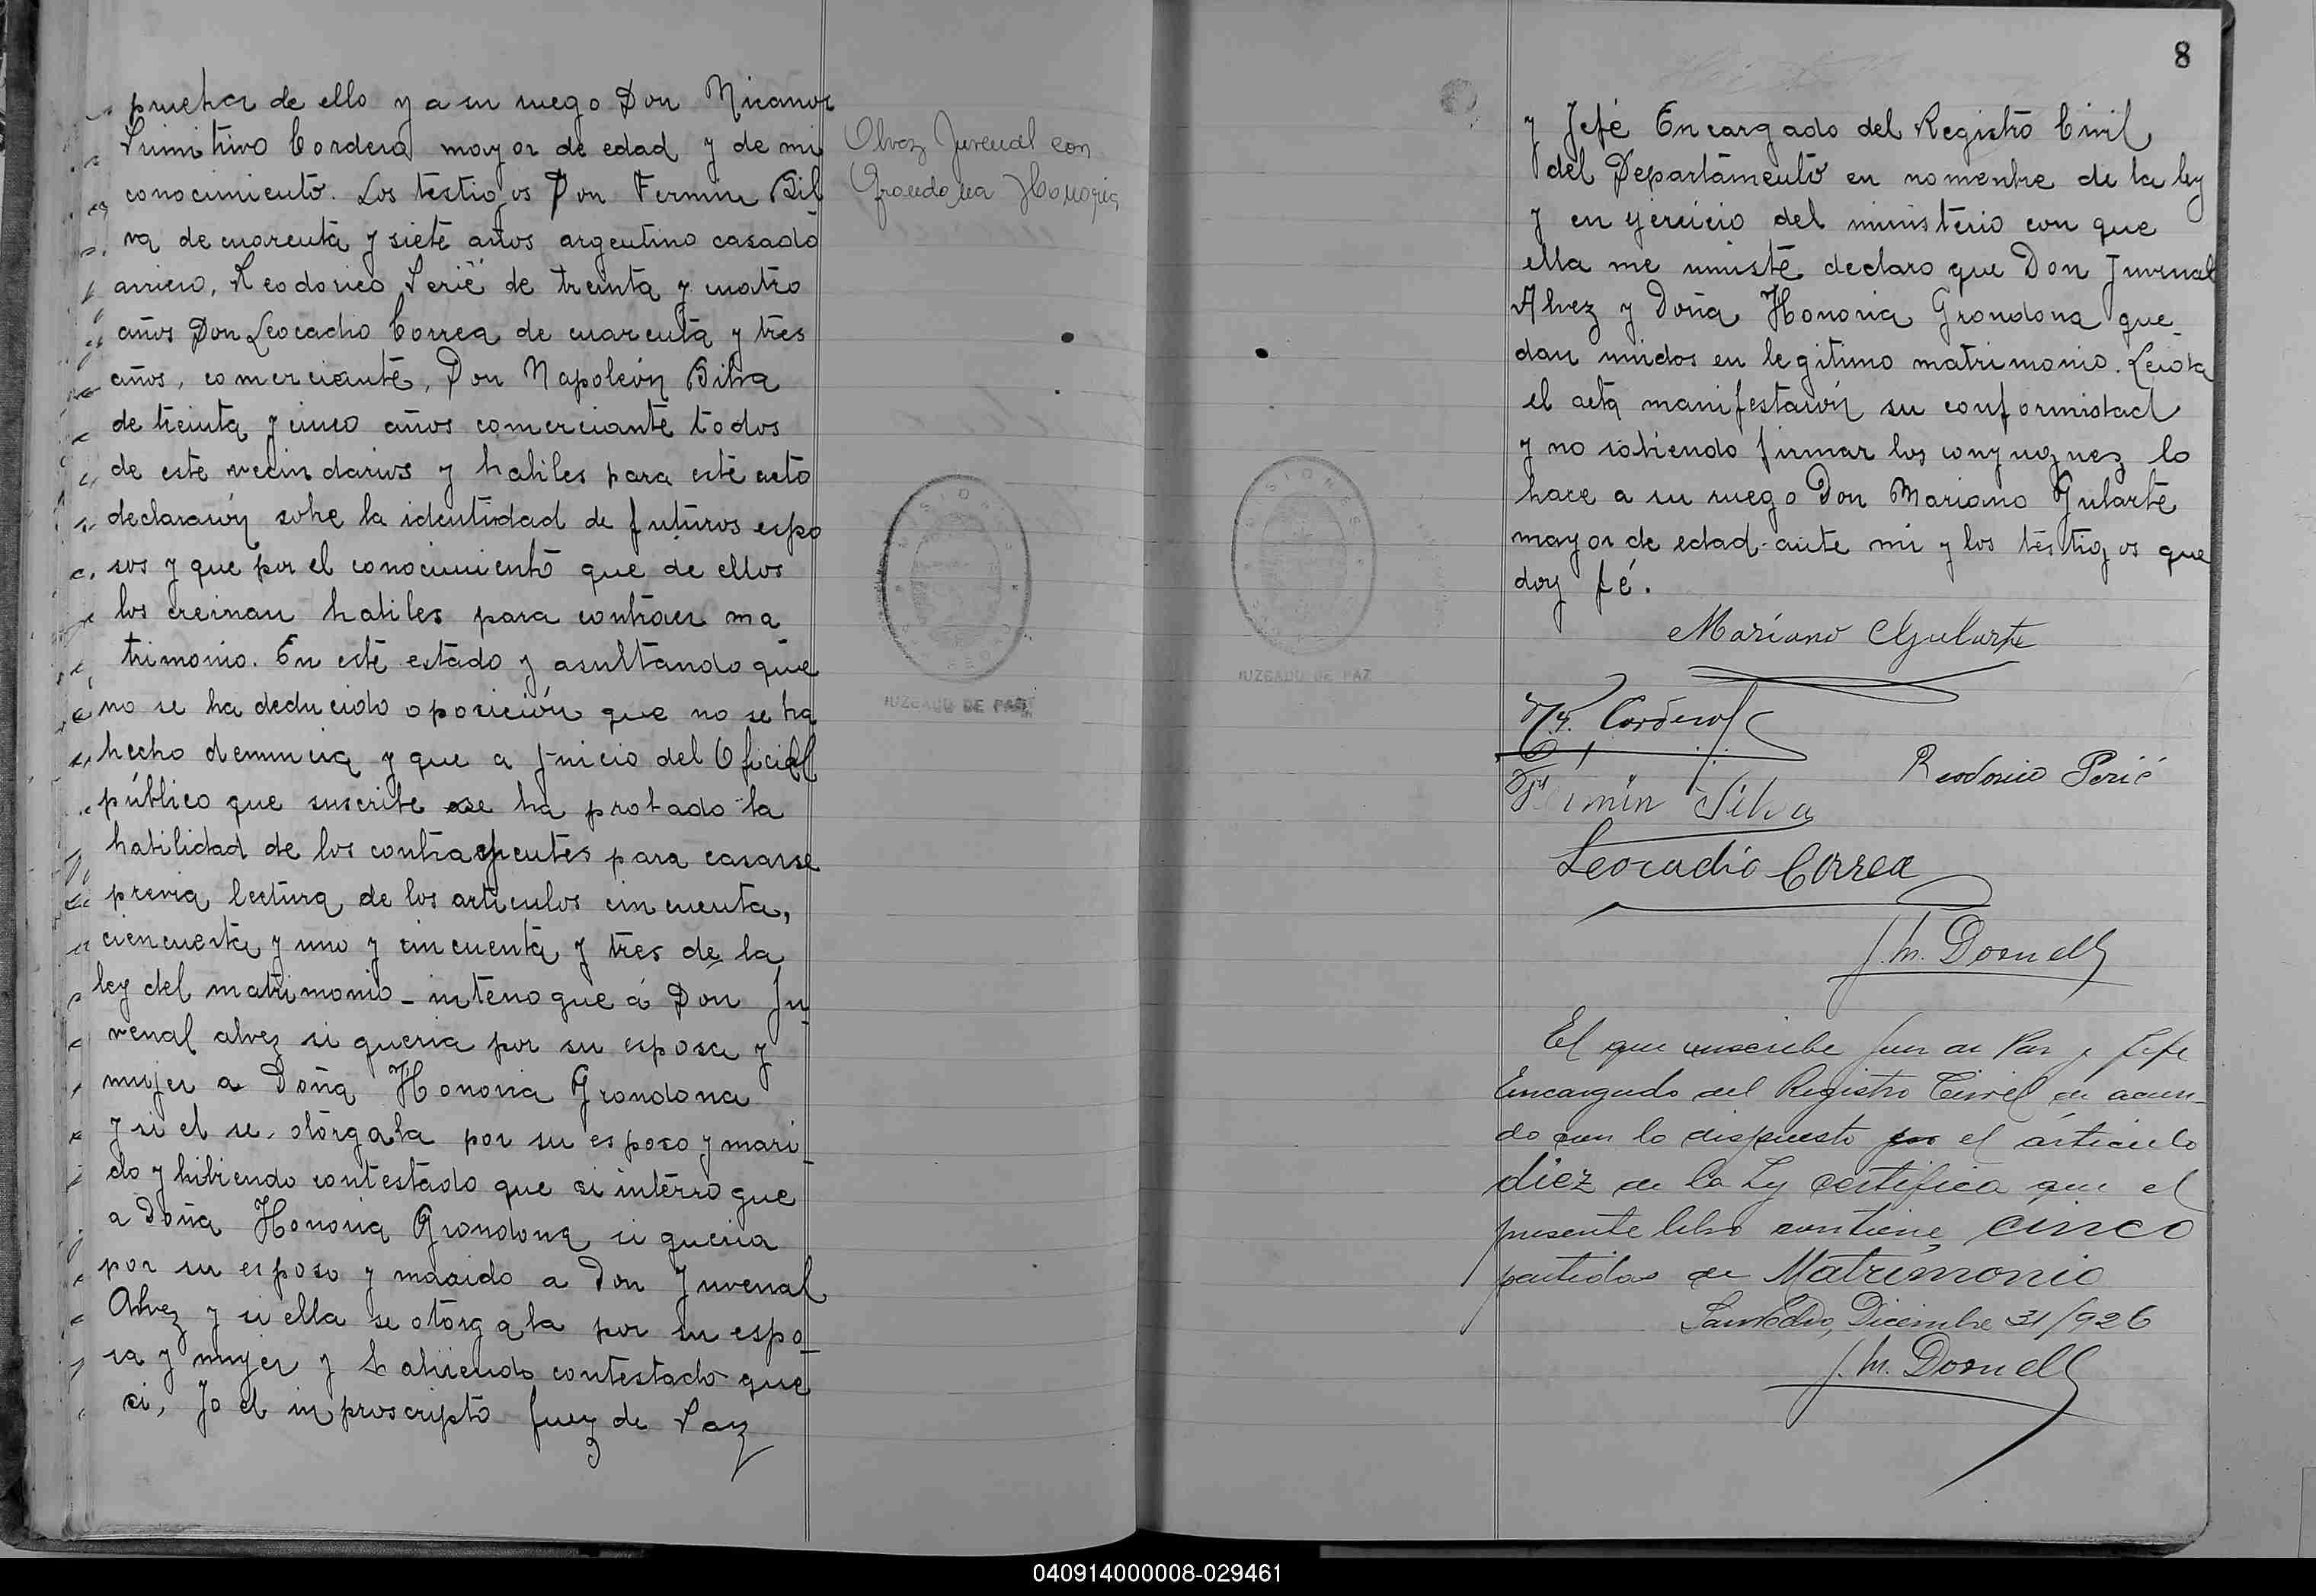 prueba de ello y a su ruego Don Nicanor
Primitivo Cordero mayor de edad y de mi
conocimiento. Los testigos Don Fermin Sil
va de cuarenta y siete años argentino casado
arriero, Reodorico Perié de treinta y cuatro
años Don Leocadio Correa de cuarenta y tres
años, comerciante, Don Napoleón Silva
de treinta y cinco años comerciante todos
de este vecindarios y habiles para este acto
declararón sobre la identidad de futuros espo
sos y que por el conocimiento que de ellos
los creinan habiles para contraer ma
trimonio. En este estado y asultando que
no se ha deducido oposición que no se ha
hecho denuncia y que a Juicio del Oficial
público que suscribe se ha probado la
habilidad de los contrayentes para casarse
previa lectura de los articulos cincuenta,
ciencuenta y uno y cincuenta y tres de la
ley del matrimonio - interrogue á Don Ju
venal alvez si queria por su esposa y
mujer a Doña Honoria Grondona
y si el se, otorgaba por su esposo y mari_
do y hibiendo contestado que si interrogue
a Doña Honoria Grondona si queria
por su esposo y maaido a Don Juvenal
Alvez y si ella se otorgaba por su espo_
sa y mujer y habiiendo contestado que
si, Jo el inproscripto Juez de Paz
Alvaz Juvenal con
Grondona Honoria
MISIONES
JUZGADO DE PAZ
8
MISIONES
JUZGADO DE PAZ
y Jefé Encargado del Registro Civil
del Departamento en nomenbre de la ley
y en ejercicio del ministerio con que
ella me uniste declaro que Don Juvenal
Alvez y Doña Honoria Grondona que_
dan unidos en legitimo matrimonio. Leida
el acta manifestarón su conformidad
y no sabiendo firmar los conyuguez lo
hace a su ruego Don Mariano Gularte
mayor de edad ante mi y los testigos que
doy fé.
Mariano Gularte
N. P. Cordero
Reodorico Perié
Fermin Silva
Leocadio Correa
J. M. Dornell
El que suscribe Juez de Paz y Jefe
Encargado del Registro Civil de acuer_
do con lo dispuesto por el artículo
diez de la Ley certifica que el
presente libro contiene cinco
partidas de Matrimonio
San Pedro, Diciembre 31/926
J. M. Dornell
040914000008-029461